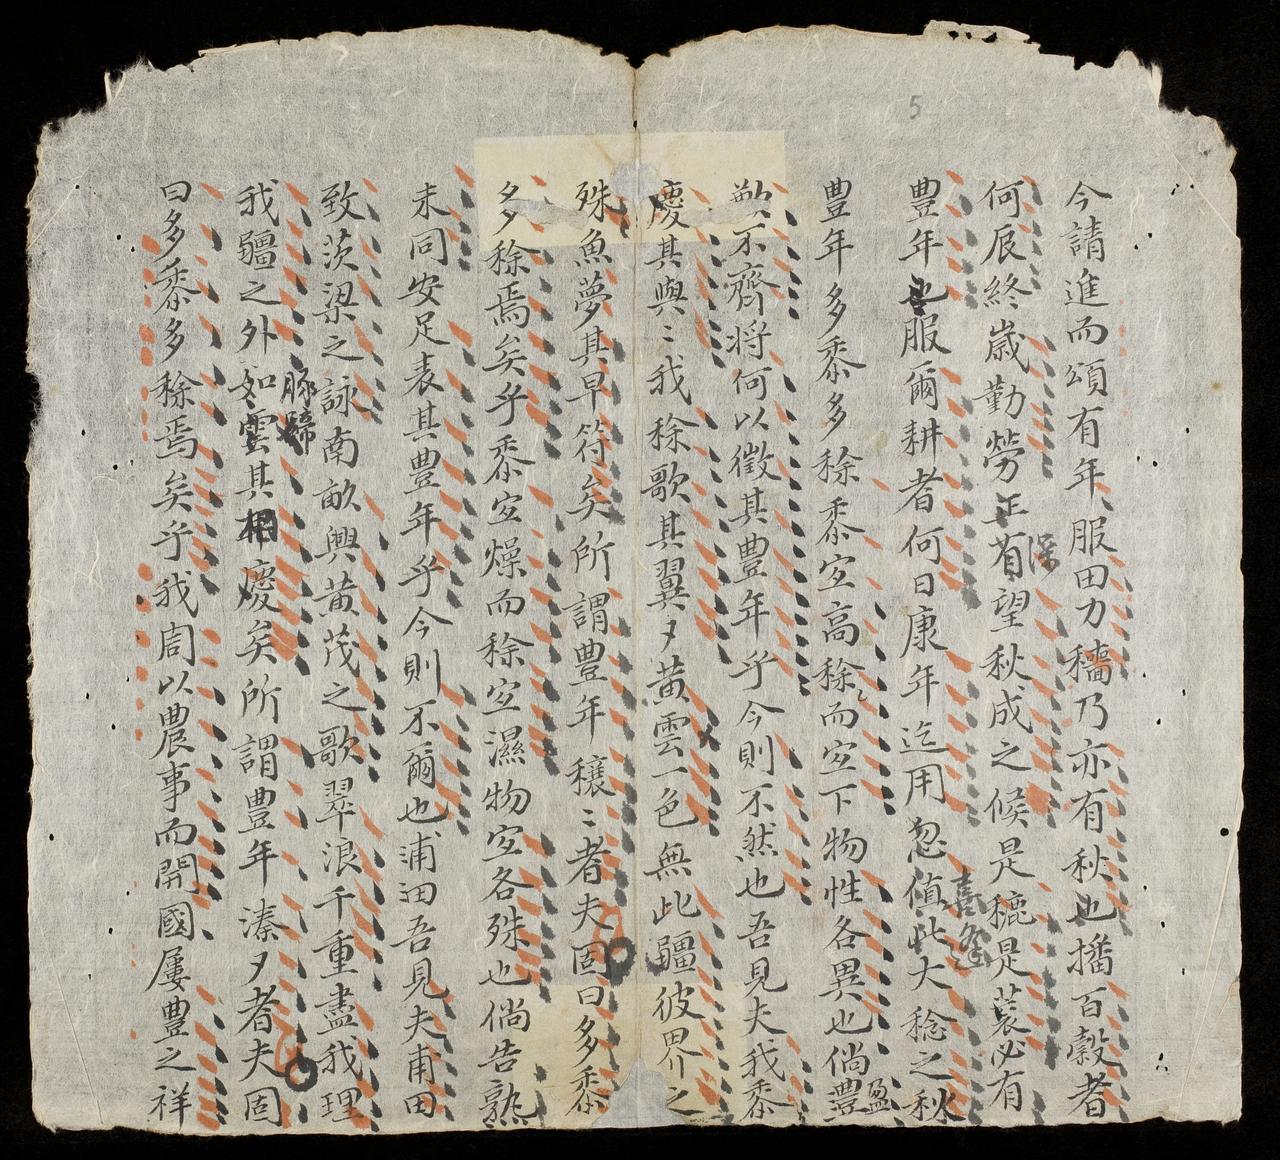 5
今請進而頌有年服田力穡乃亦有秋也播百穀者
何辰終歲勤勞正有深望秋成之候是穮是蓘必有
豊年也服爾耕者何日康年迄用忽値此喜逢大稔之秋
豊年多黍多稌黍宜高稌而宜下物性各異也倘豐盈
歉不齊將何以徵其豊年乎今則不然也吾見夫我黍
慶其與〻我稌歌其翼〻黄雲一色無此疆彼界之
殊魚夢其早符矣所謂豊年穰〻者夫固曰多黍
多稌焉矣乎黍宜燥而稌宜濕物宜各殊也倘告熟
未同安足表其豊年乎今則不爾也浦田吾見夫甫田
致茨梁之詠南畝興黄茂之歌翠浪千重盡我理
我疆之外如雲豚蹄其相慶矣所謂豊年溱〻者夫固
曰多黍多稌焉矣乎我周以農事而開國屢豊之祥